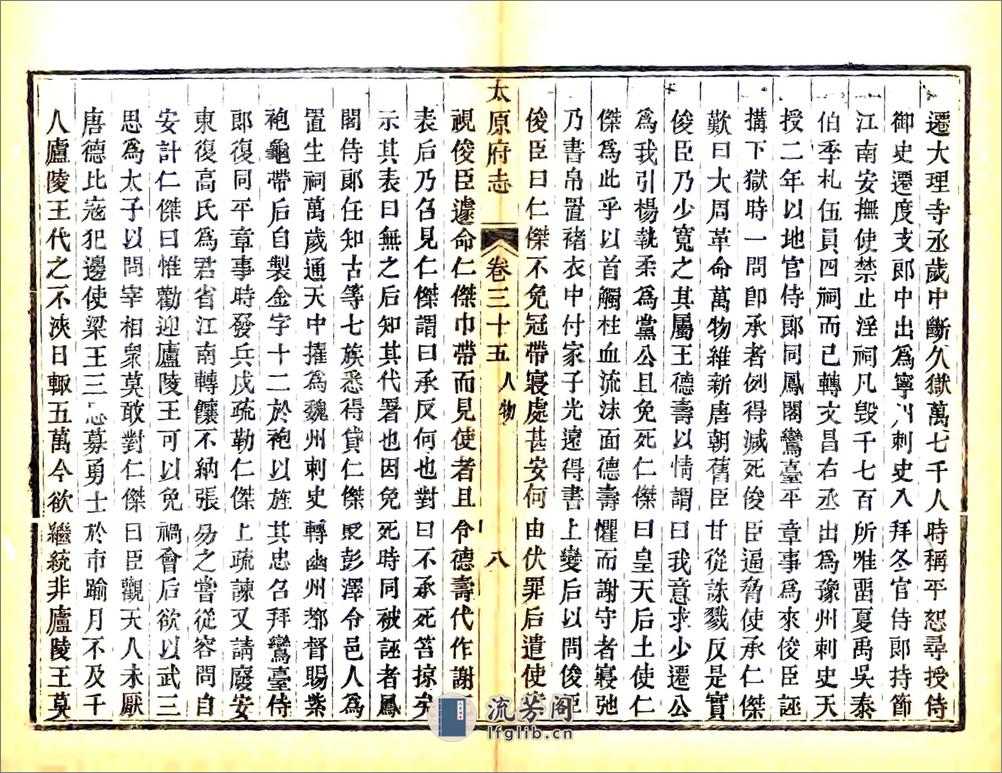 遷大理寺丞歲中斷久獄萬七千人時稱平恕尋授侍
御史遷度支郎中出為寧州刺史入拜冬官侍郎持節
江南安撫使禁止淫祠凡毀千七百所唯畱夏禹吳泰
伯季札伍員四祠而已轉文昌右丞出為豫州刺史天
授二年以地官侍郎同鳳閣鸞臺平章事為來俊臣誣
搆下獄時一問卽承者例得減死俊臣逼脅使承仁傑
歎曰大周革命萬物維新唐朝舊臣甘從誅戮反是實
俊臣乃少寬之其屬王德壽以情謂曰我意求少遷公
為我引楊執柔為黨公且免死仁傑曰皇天后土使仁
傑為此乎以首觸柱血流沫面德壽懼而謝守者寖弛
乃書帛置褚衣中付家子光遠得書上變后以問俊臣
俊臣曰仁傑不免冠帶寢處甚安何由伏罪后遣使
太原府志 卷三十五 人物 八
視俊臣遽命仁傑巾帶而見使者且令德壽代作謝死
表后乃召見仁傑謂曰承反何也對曰不承死笞掠矣
示其表曰無之后知其代署也因免死時同被誣者鳳
閣侍郎任知古等七族悉得貸仁傑貶彭澤令邑人為
置生祠萬歲通天中擢為魏州刺史轉幽州都督賜紫
袍龜帶后自製金字十二於袍以旌其忠召拜鸞臺侍
郎復同平章事時發兵戍疏勒仁傑上疏諫又請廢安
東復高氏為君省江南轉饟不納張易之嘗從容問自
安計仁傑曰惟勸迎廬陵王可以免禍會后欲以武三
思為太子以問宰相衆莫敢對仁傑曰臣觀天人未厭
唐德比寇犯邊使梁王三思募勇士於市踰月不及千
人廬陵王代之不浹日輙五萬今欲繼統非廬陵王莫
流芳阁
lfglib.cn